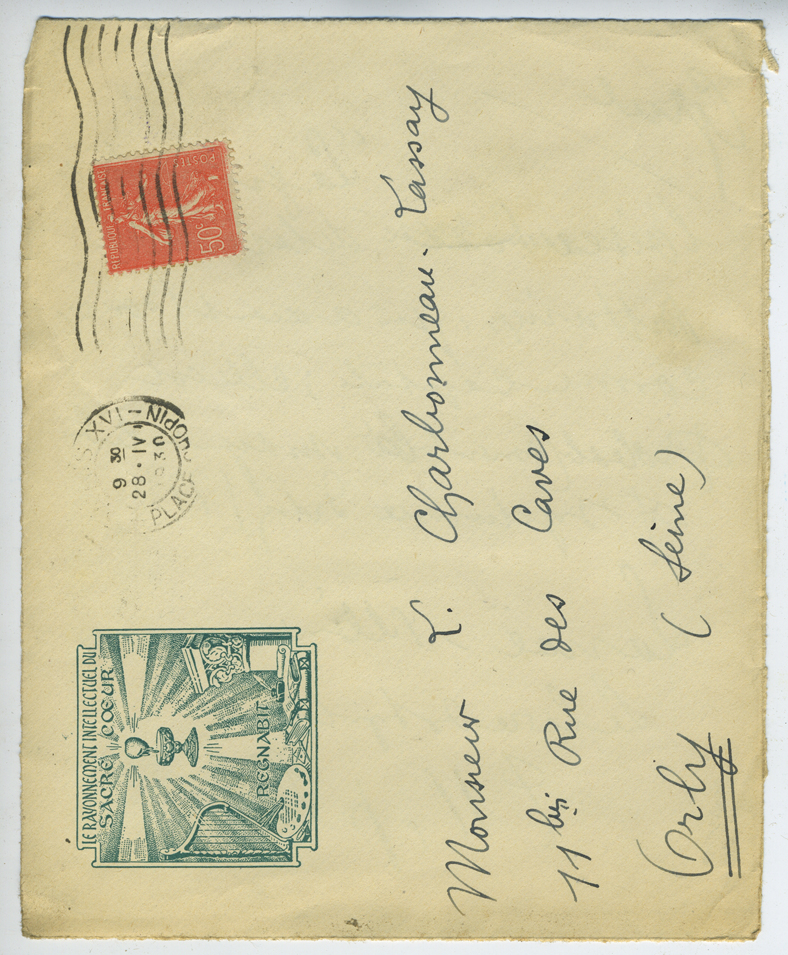 LE RAYONNEMENT INTELLECTUEL DU
SACRÉ CŒUR
REGNABIT
XVI - PLACE CHOPIN
9 30
28 · IV
1930
RÉPUBLIQUE FRANÇAISE
POSTES
50c
Monsieur L. Charbonneau-Lassay
11 bis Rue des Caves
Orly (Seine)